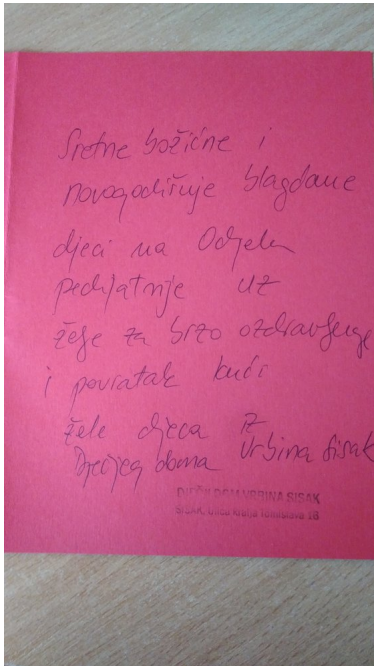 Sretne božićne i
novogodišnje blagdane
djeci na Odjelu
pedijatrije uz
želje za brzo ozdravljenje
i povratak kući
žele djeca iz
Dječjeg doma Vrbina Sisak
DJEČJI DOM VRBINA SISAK
SISAK, Ulica kralja Tomislava 18